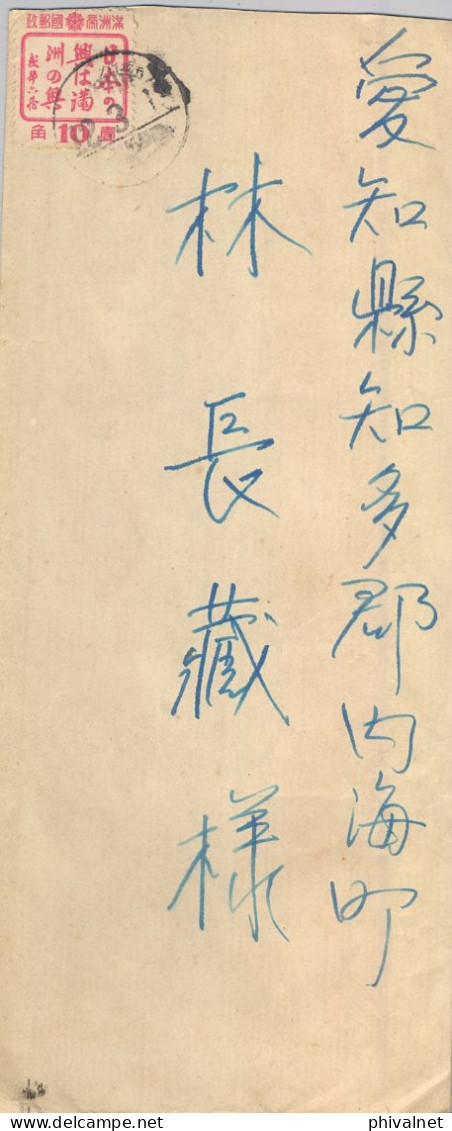 愛知縣知多郡内海町
林長藏様
政郵國帝洲滿
日本の
興は満
洲の興
角 10 圓
www.delcampe.net
phivalnet